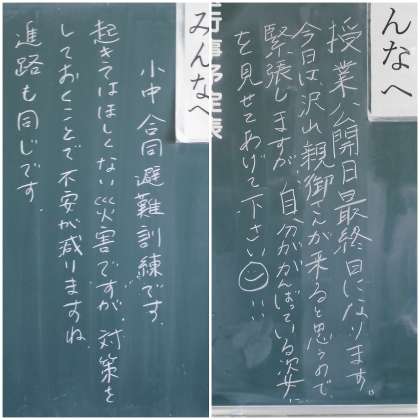 みんなへ
小中合同避難訓練です.
起きてはほしくない災害ですが、対策を
しておくことで不安が減りますね.
進路も同じです.
んなへ
授業公開日最終日になります。
今日は沢山親御さんが来ると思うので
緊張しますが、自分ががんばっている姿
を見せてあげて下さい☺!!
行事予定表